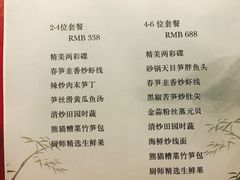 2-4位套餐
RMB 338
精美两彩碟
春笋韭香炒虾线
辣炒肉末笋丁
笋丝滑黄瓜鱼汤
清炒田园时蔬
熊猫糟菜竹笋包
厨师精选生鲜果
4-6 位套餐
RMB 688
精美两彩碟
砂锅天目笋胖鱼头
春笋韭香炒虾线
黑椒苦笋炒肚尖
金蒜粉丝蒸元贝
清炒田园时蔬
海鲜炒线面
熊猫糟菜竹笋包
厨师精选生鲜果